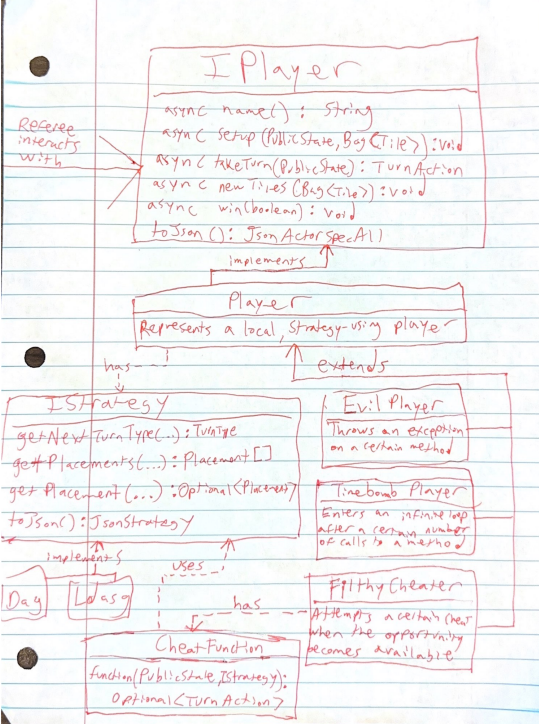 IPlayer
async name(): String
async setup(PublicState, Bag<Tile>): void
async takeTurn(PublicState): TurnAction
async newTiles(Bag<Tile>): void
async win(boolean): void
toJson(): JsonActorSpecAll
Referee
interacts
with
implements
Player
Represents a local, Strategy-using player
has
extends
IStrategy
getNextTurnType(..): TurnType
getPlacements(...): Placement[]
get Placement(...): Optional<Placement>
toJson(): JsonStrategy
implements
Dag
Ldasg
Evil Player
Throws an exception
on a certain method
Timebomb Player
Enters an infinite loop
after a certain number
of calls to a method
Filthy Cheater
Attempts a certain cheat
when the opportunity
becomes available
uses
has
CheatFunction
function(PublicState, IStrategy):
Optional<TurnAction>